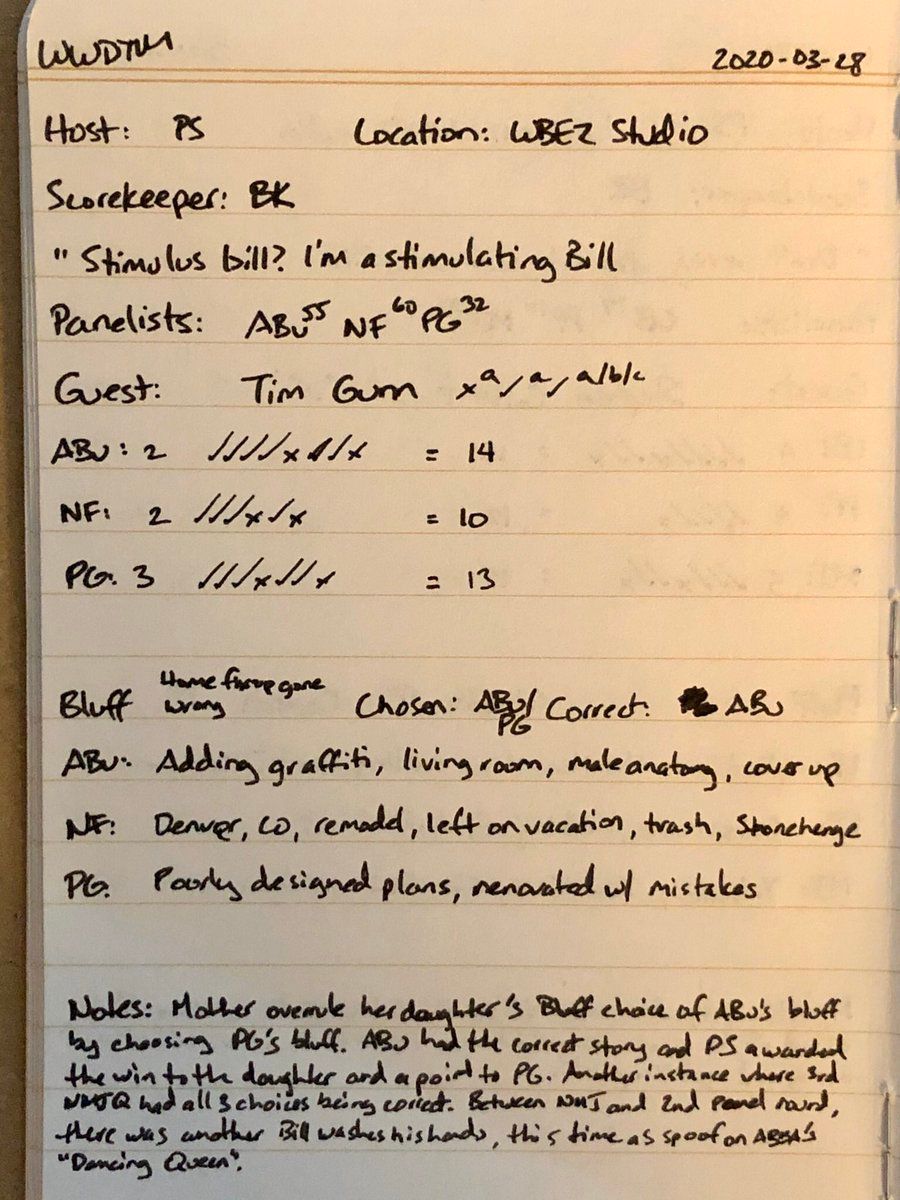 WWDTM 2020-03-28
Host: PS Location: WBEZ Studio
Scorekeeper: BK
" Stimulus bill? I'm a stimulating Bill
Panelists: ABu 55 NF 60 PG 32
Guest: Tim Gunn x a ✓ a ✓ a/b/c
ABu: 2 ✓✓✓✓x✓✓✓x = 14
NF: 2 ✓✓✓x✓x = 10
PG: 3 ✓✓✓x✓✓x = 13
Bluff Home fixup gone wrong Chosen: ABu/PG Correct: ABu
ABu: Adding graffiti, living room, male anatomy, cover up
NF: Denver, CO, remodel, left on vacation, trash, Stonehenge
PG: Poorly designed plans, renovated w/ mistakes
Notes: Mother overrule her daughter's Bluff choice of ABu's bluff
by choosing PG's bluff. ABu had the correct story and PS awarded
the win to the daughter and a point to PG. Another instance where 3rd
NMJQ had all 3 choices being correct. Between NMJ and 2nd panel round,
there was another Bill washes his hands, this time as spoof on ABBA's
"Dancing Queen".